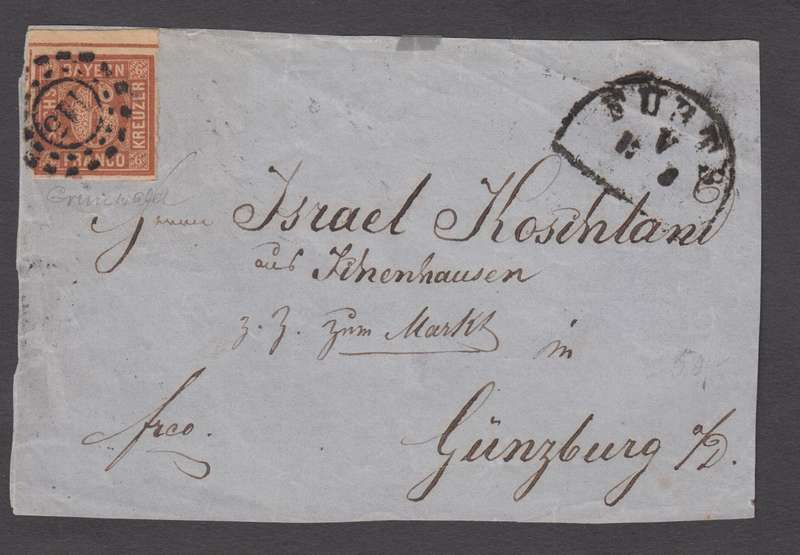 BAYERN
6
6
KREUZER
FRANCO
6
6
115
FURTH
V
Grünwald
Herrn Israel Koschland
aus Ichenhausen
z. Z. zum Markt
in
frco. Günzburg a/D.